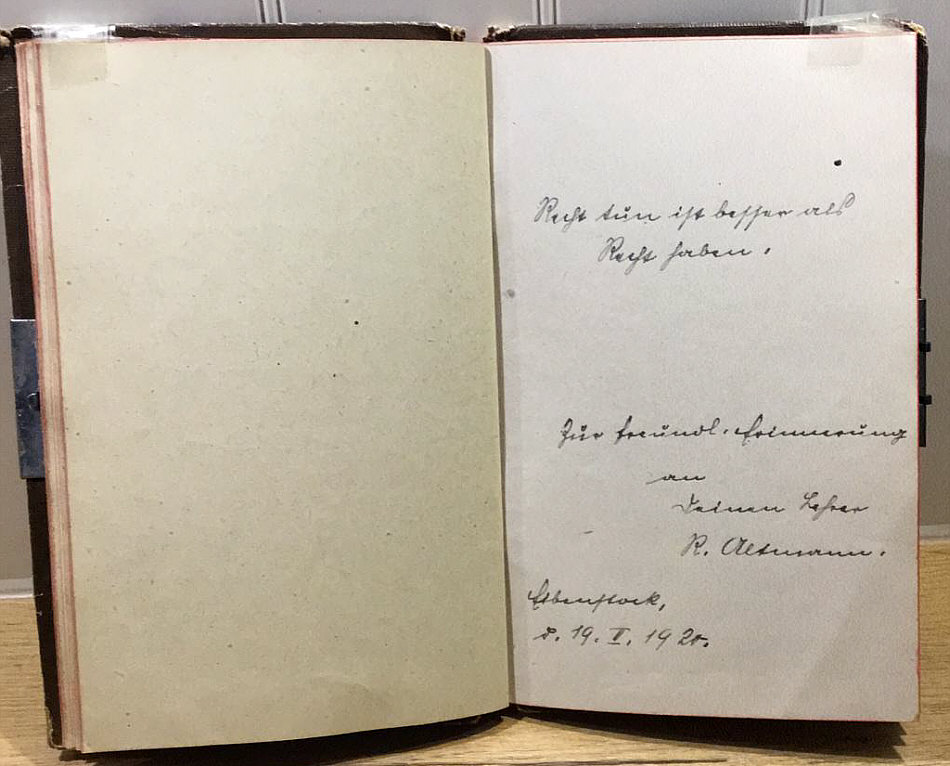 Recht tun ist besser als
Recht haben.
Zur freundl. Erinnerung
an
Deinen Lehrer
R. Altmann.
Eibenstock,
d. 19. II. 1920.